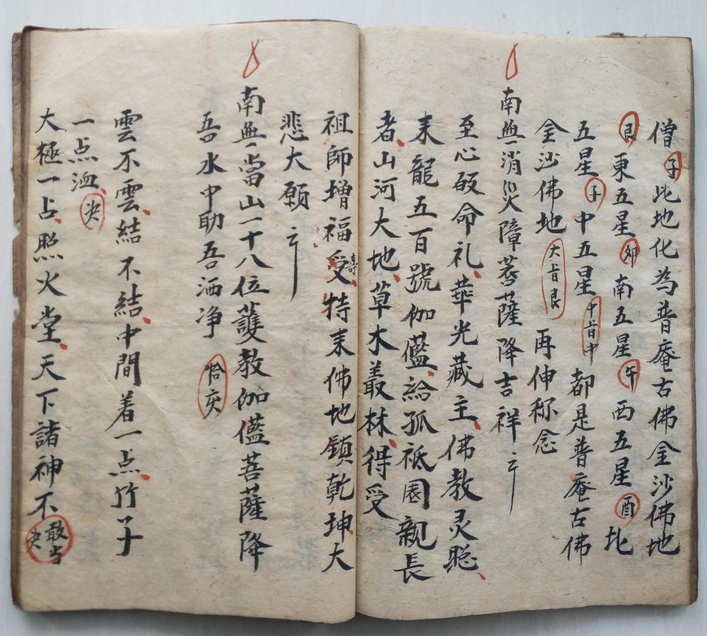 僧子此地化為普庵古佛金沙佛地
艮東五星卯南五星午西五星酉北
五星子中五星中指中都是普庵古佛
金沙佛地大指艮再伸称念
南無消災障菩薩降吉祥
至心皈命礼華光藏主佛教灵聪
来龍五百號伽藍給孤祇園親長
者山河大地草木叢林得受
祖師增福受壽特来佛地鎮乾坤大
悲大願
南無當山一十八位護教伽藍菩薩降
吾水中助吾洒净
雲不雲結不結中間着一点竹子
一点
大極一占照火堂天下諸神不敢当